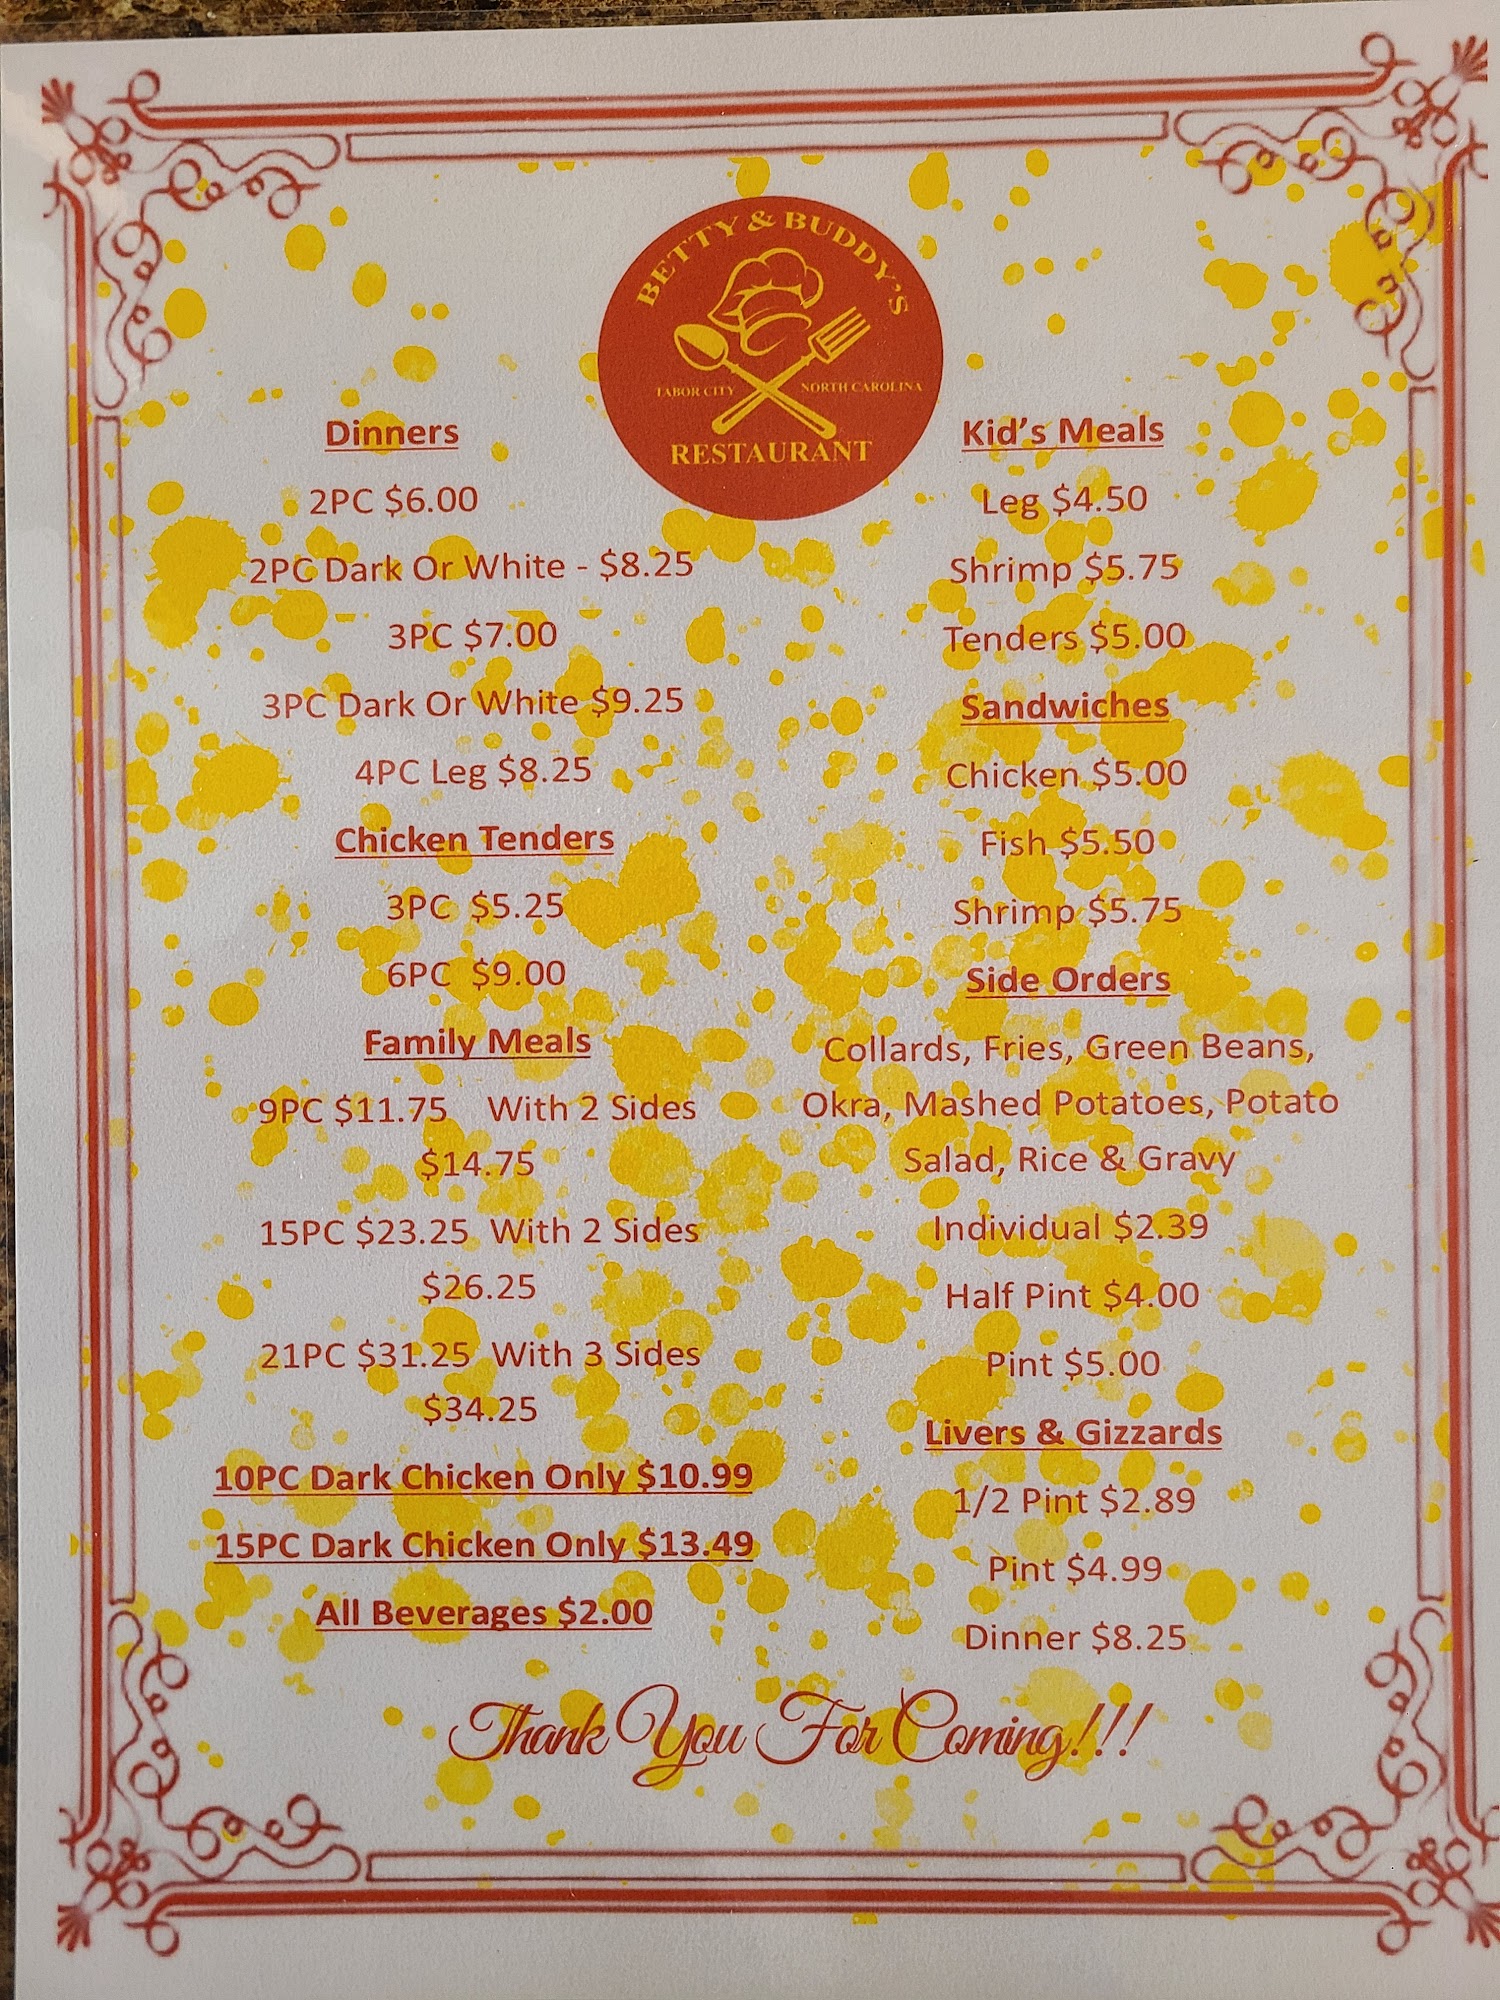 BETTY & BUDDY'S
TABOR CITY NORTH CAROLINA
RESTAURANT
Dinners
2PC $6.00
2PC Dark Or White - $8.25
3PC $7.00
3PC Dark Or White $9.25
4PC Leg $8.25
Chicken Tenders
3PC $5.25
6PC $9.00
Family Meals
9PC $11.75 With 2 Sides
$14.75
15PC $23.25 With 2 Sides
$26.25
21PC $31.25 With 3 Sides
$34.25
10PC Dark Chicken Only $10.99
15PC Dark Chicken Only $13.49
All Beverages $2.00
Kid's Meals
Leg $4.50
Shrimp $5.75
Tenders $5.00
Sandwiches
Chicken $5.00
Fish $5.50
Shrimp $5.75
Side Orders
Collards, Fries, Green Beans,
Okra, Mashed Potatoes, Potato
Salad, Rice & Gravy
Individual $2.39
Half Pint $4.00
Pint $5.00
Livers & Gizzards
1/2 Pint $2.89
Pint $4.99
Dinner $8.25
Thank You For Coming!!!